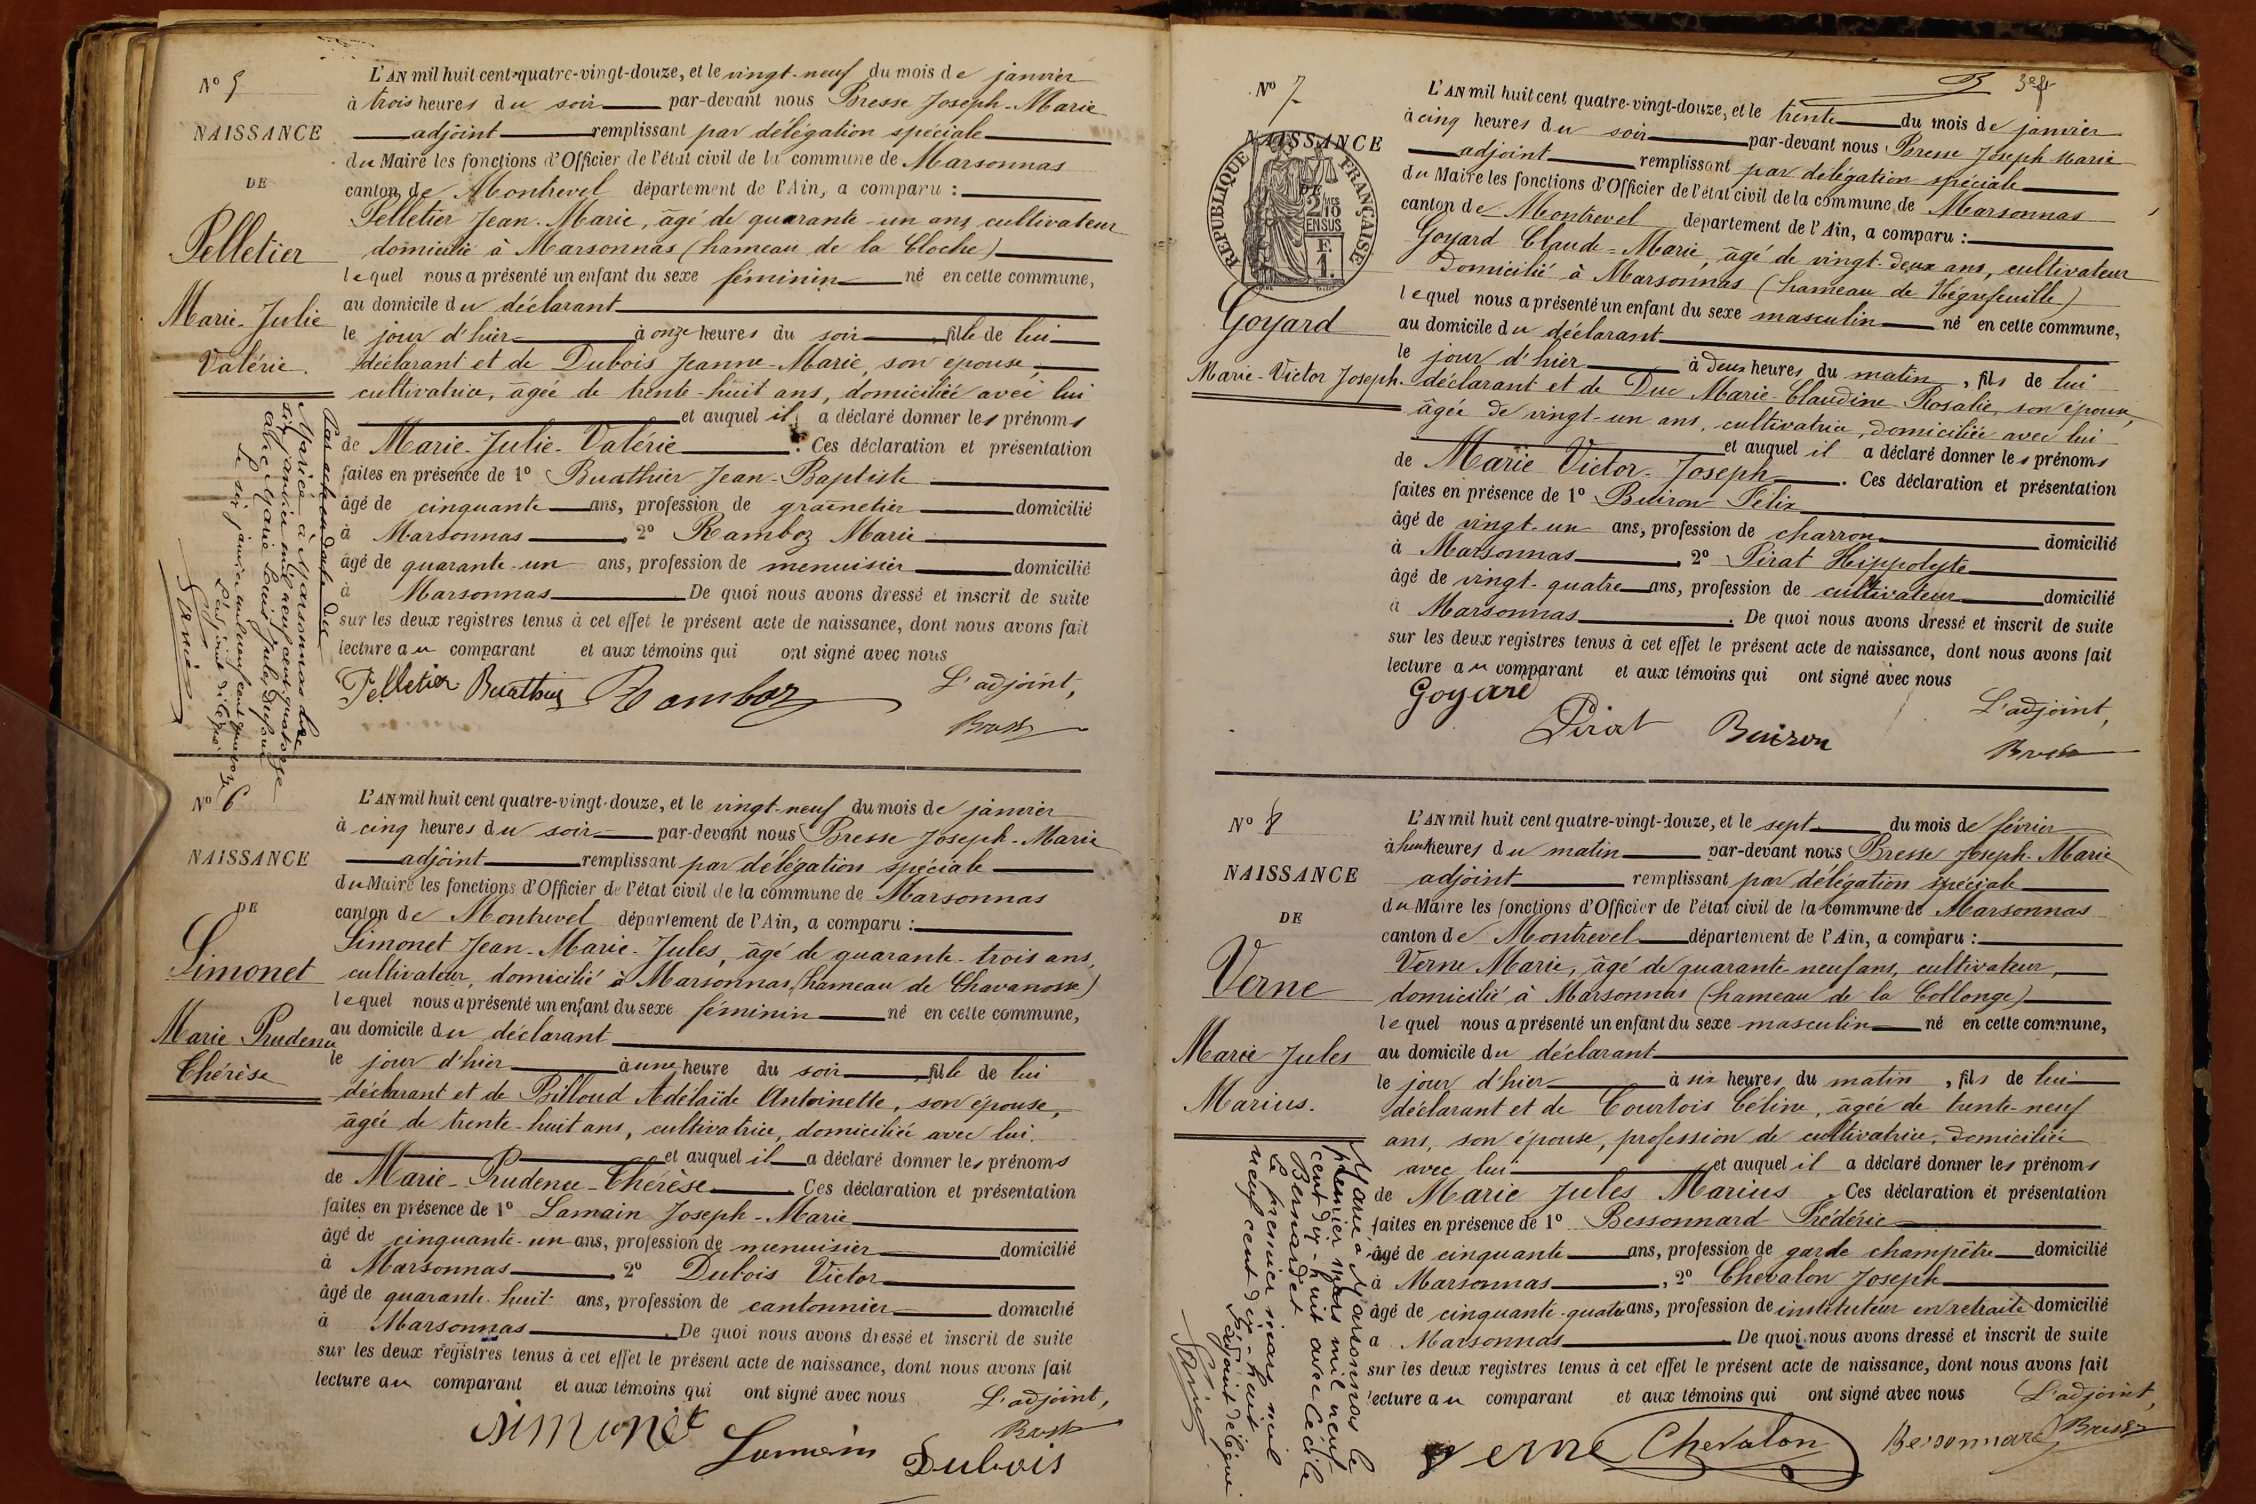 Nº 5
NAISSANCE
DE
Pelletier
Marie-Julie
Valérie.
L'AN mil huit cent quatre-vingt-douze, et le vingt-neuf du mois de janvier
à trois heures du soir par-devant nous Bresse Joseph-Marie
adjoint remplissant par délégation spéciale
du Maire les fonctions d'Officier de l'état civil de la commune de Marsonnas
canton de Montrevel département de l'Ain, a comparu :
Pelletier Jean-Marie, âgé de quarante-un ans, cultivateur
domicilié à Marsonnas (hameau de la Cloche)
lequel nous a présenté un enfant du sexe féminin né en cette commune,
au domicile du déclarant
le jour d'hier à onze heures du soir, fille de lui
déclarant et de Dubois Jeanne-Marie, son épouse,
cultivatrice, âgée de trente-huit ans, domiciliée avec lui
et auquel il a déclaré donner les prénoms
de Marie-Julie-Valérie. Ces déclaration et présentation
faites en présence de 1º Buathier Jean-Baptiste
âgé de cinquante ans, profession de grainetier domicilié
à Marsonnas, 2º Ramboz Marie
âgé de quarante-un ans, profession de menuisier domicilié
à Marsonnas De quoi nous avons dressé et inscrit de suite
sur les deux registres tenus à cet effet le présent acte de naissance, dont nous avons fait
lecture au comparant et aux témoins qui ont signé avec nous
Pelletier Buathier Ramboz
L'adjoint,
Bresse
Par acte en date du
Mariée à Marsonnas le
six janvier mil neuf cent quatorze
avec Marie Louis Jules Dufour
Le six janvier mil neuf cent quatorze
L'adjoint délégué
Nº 6
NAISSANCE
DE
Simonet
Marie Prudence
Thérèse
L'AN mil huit cent quatre-vingt-douze, et le vingt-neuf du mois de janvier
à cinq heures du soir par-devant nous Bresse Joseph-Marie
adjoint remplissant par délégation spéciale
du Maire les fonctions d'Officier de l'état civil de la commune de Marsonnas
canton de Montrevel département de l'Ain, a comparu :
Simonet Jean-Marie-Jules, âgé de quarante-trois ans,
cultivateur, domicilié à Marsonnas, (hameau de Chavanosse)
lequel nous a présenté un enfant du sexe féminin né en cette commune,
au domicile du déclarant
le jour d'hier à une heure du soir, fille de lui
déclarant et de Billoud Adélaïde Antoinette, son épouse,
âgée de trente-huit ans, cultivatrice, domiciliée avec lui.
et auquel il a déclaré donner les prénoms
de Marie-Prudence-Thérèse Ces déclaration et présentation
faites en présence de 1º Lamain Joseph-Marie
âgé de cinquante-un ans, profession de menuisier domicilié
à Marsonnas, 2º Dubois Victor
âgé de quarante-huit ans, profession de cantonnier domicilié
à Marsonnas. De quoi nous avons dressé et inscrit de suite
sur les deux registres tenus à cet effet le présent acte de naissance, dont nous avons fait
lecture au comparant et aux témoins qui ont signé avec nous
L'adjoint,
Simonet Lamain Dubois Bresse
Nº 7
NAISSANCE
DE
REPUBLIQUE FRANÇAISE
2 MES 10
EN SUS
F.
1.
Goyard
Marie-Victor Joseph.
L'AN mil huit cent quatre-vingt-douze, et le trente du mois de janvier
à cinq heures du soir par-devant nous Bresse Joseph Marie
adjoint remplissant par délégation spéciale
du Maire les fonctions d'Officier de l'état civil de la commune de Marsonnas
canton de Montrevel département de l'Ain, a comparu :
Goyard Claude-Marie, âgé de vingt-deux ans, cultivateur
domicilié à Marsonnas (hameau de Négrefeuille)
lequel nous a présenté un enfant du sexe masculin né en cette commune,
au domicile du déclarant
le jour d'hier à deux heures du matin, fils de lui
déclarant et de Duc Marie-Claudine Rosalie, son épouse,
âgée de vingt-un ans, cultivatrice, domiciliée avec lui
et auquel il a déclaré donner les prénoms
de Marie Victor-Joseph. Ces déclaration et présentation
faites en présence de 1º Buiron Félix
âgé de vingt-un ans, profession de charron domicilié
à Marsonnas, 2º Pirat Hippolyte
âgé de vingt-quatre ans, profession de cultivateur domicilié
à Marsonnas. De quoi nous avons dressé et inscrit de suite
sur les deux registres tenus à cet effet le présent acte de naissance, dont nous avons fait
lecture au comparant et aux témoins qui ont signé avec nous
Goyard Pirat Buiron
L'adjoint,
Bresse
Nº 8
NAISSANCE
DE
Verne
Marie Jules
Marius.
L'AN mil huit cent quatre-vingt-douze, et le sept du mois de février
à huit heures du matin par-devant nous Bresse Joseph-Marie
adjoint remplissant par délégation spéciale
du Maire les fonctions d'Officier de l'état civil de la commune de Marsonnas
canton de Montrevel département de l'Ain, a comparu :
Verne Marie, âgé de quarante-neuf ans, cultivateur,
domicilié à Marsonnas (hameau de la Collonge)
lequel nous a présenté un enfant du sexe masculin né en cette commune,
au domicile du déclarant
le jour d'hier à six heures du matin, fils de lui
déclarant et de Courtois Céline, âgée de trente-neuf
ans, son épouse, profession de cultivatrice, domiciliée
avec lui et auquel il a déclaré donner les prénoms
de Marie Jules Marius. Ces déclaration et présentation
faites en présence de 1º Bessonnard Frédéric
âgé de cinquante ans, profession de garde champêtre domicilié
à Marsonnas, 2º Chevalon Joseph
âgé de cinquante-quatre ans, profession de instituteur en retraite domicilié
à Marsonnas De quoi nous avons dressé et inscrit de suite
sur les deux registres tenus à cet effet le présent acte de naissance, dont nous avons fait
lecture au comparant et aux témoins qui ont signé avec nous
L'adjoint,
Verne Chevalon Bessonnard Bresse
Marié à Marsonnas le
premier mars mil neuf
cent dix-huit avec Cécile
Bernardet
Le premier mars mil
neuf cent dix-huit
L'adjoint délégué